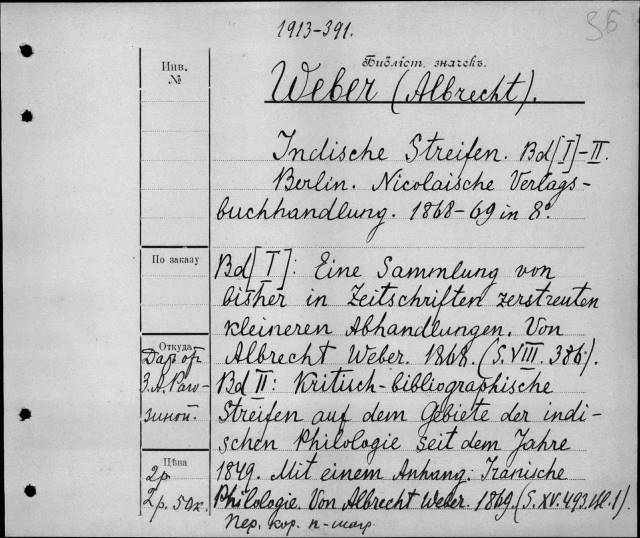 36
1913-391.
Инв.
№
Библіот. значекъ.
Weber (Albrecht).
Indische Streifen. Bd[I]-II.
Berlin. Nicolaische Verlags-
buchhandlung. 1868-69 in 8º.
По заказу
Bd[I]: Eine Sammlung von
bisher in Zeitschriften zerstreuten
kleineren Abhandlungen. Von
Albrecht Weber. 1868. (S. VIII. 386).
Откуда
Дар от
З. А. Раго-
зиной.
Bd II: Kritisch-bibliographische
Streifen auf dem Gebiete der indi-
schen Philologie seit dem Jahre
1849. Mit einem Anhang: Iranische
Philologie. Von Albrecht Weber. 1869. (S. XV. 493
Цѣна
2р.
2р. 50к.
Пер. кор.